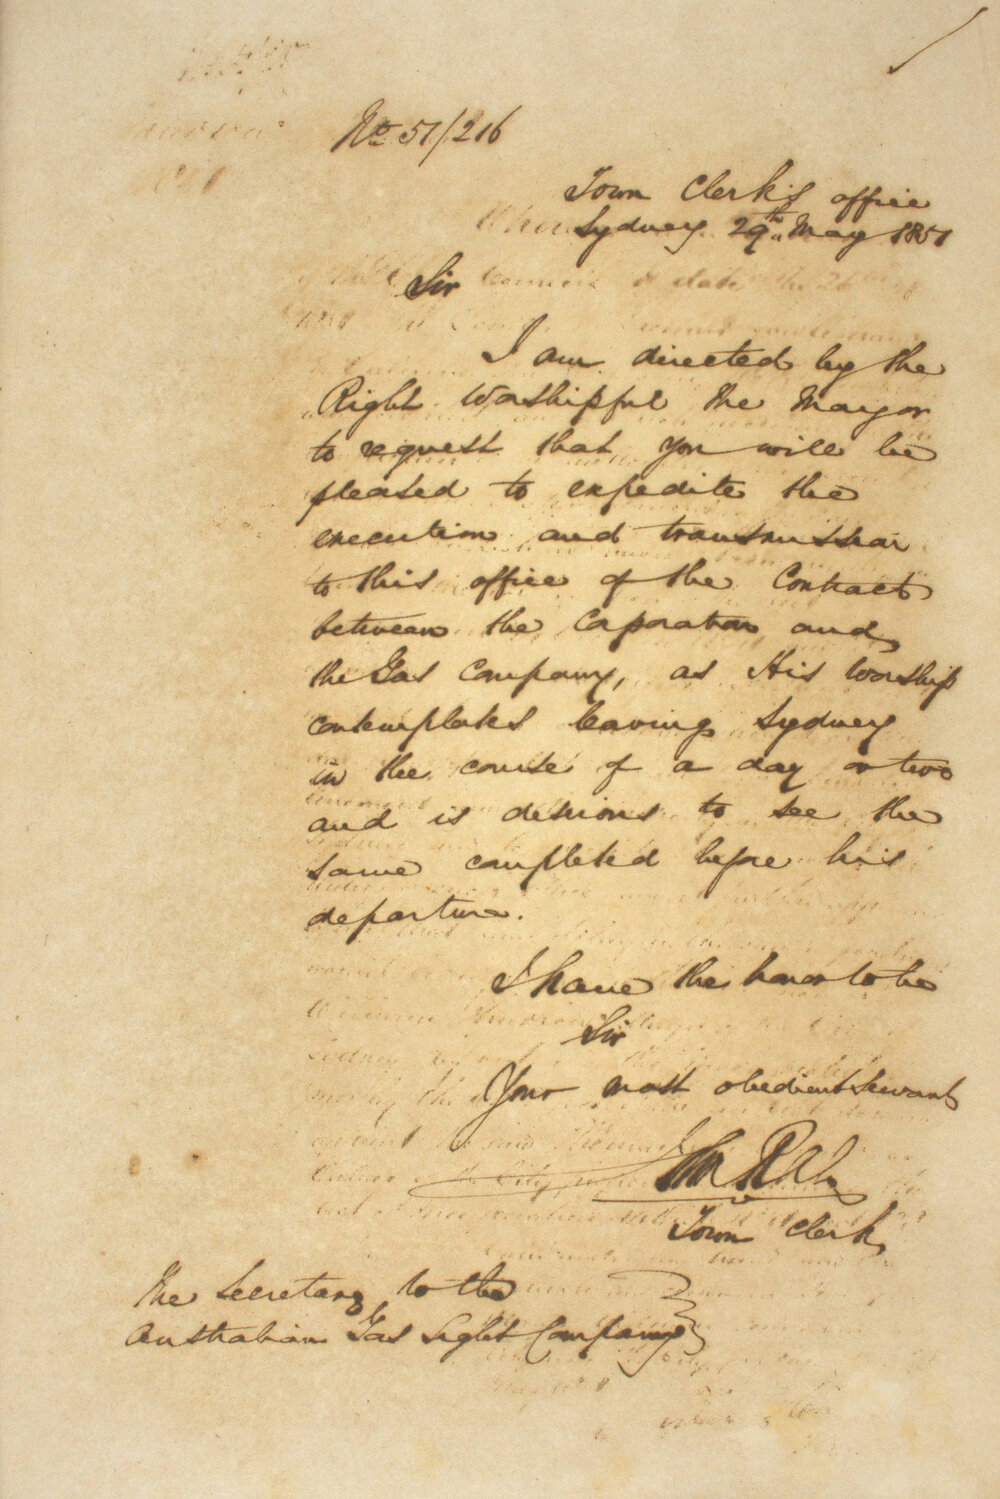 No 51/216
Town Clerk's office
Sydney 29th May 1851
Sir
I am directed by the
Right Worshipful the Mayor
to request that you will be
pleased to expedite the
execution and transmission
to this office of the Contract
between the Corporation and
the Gas Company, as His Worship
contemplates leaving Sydney
in the course of a day or two
and is desirous to see the
same completed before his
departure.
I have the honor to be
Sir
Your most obedient Servant
Town Clerk
The Secretary to the
Australian Gas Light Company